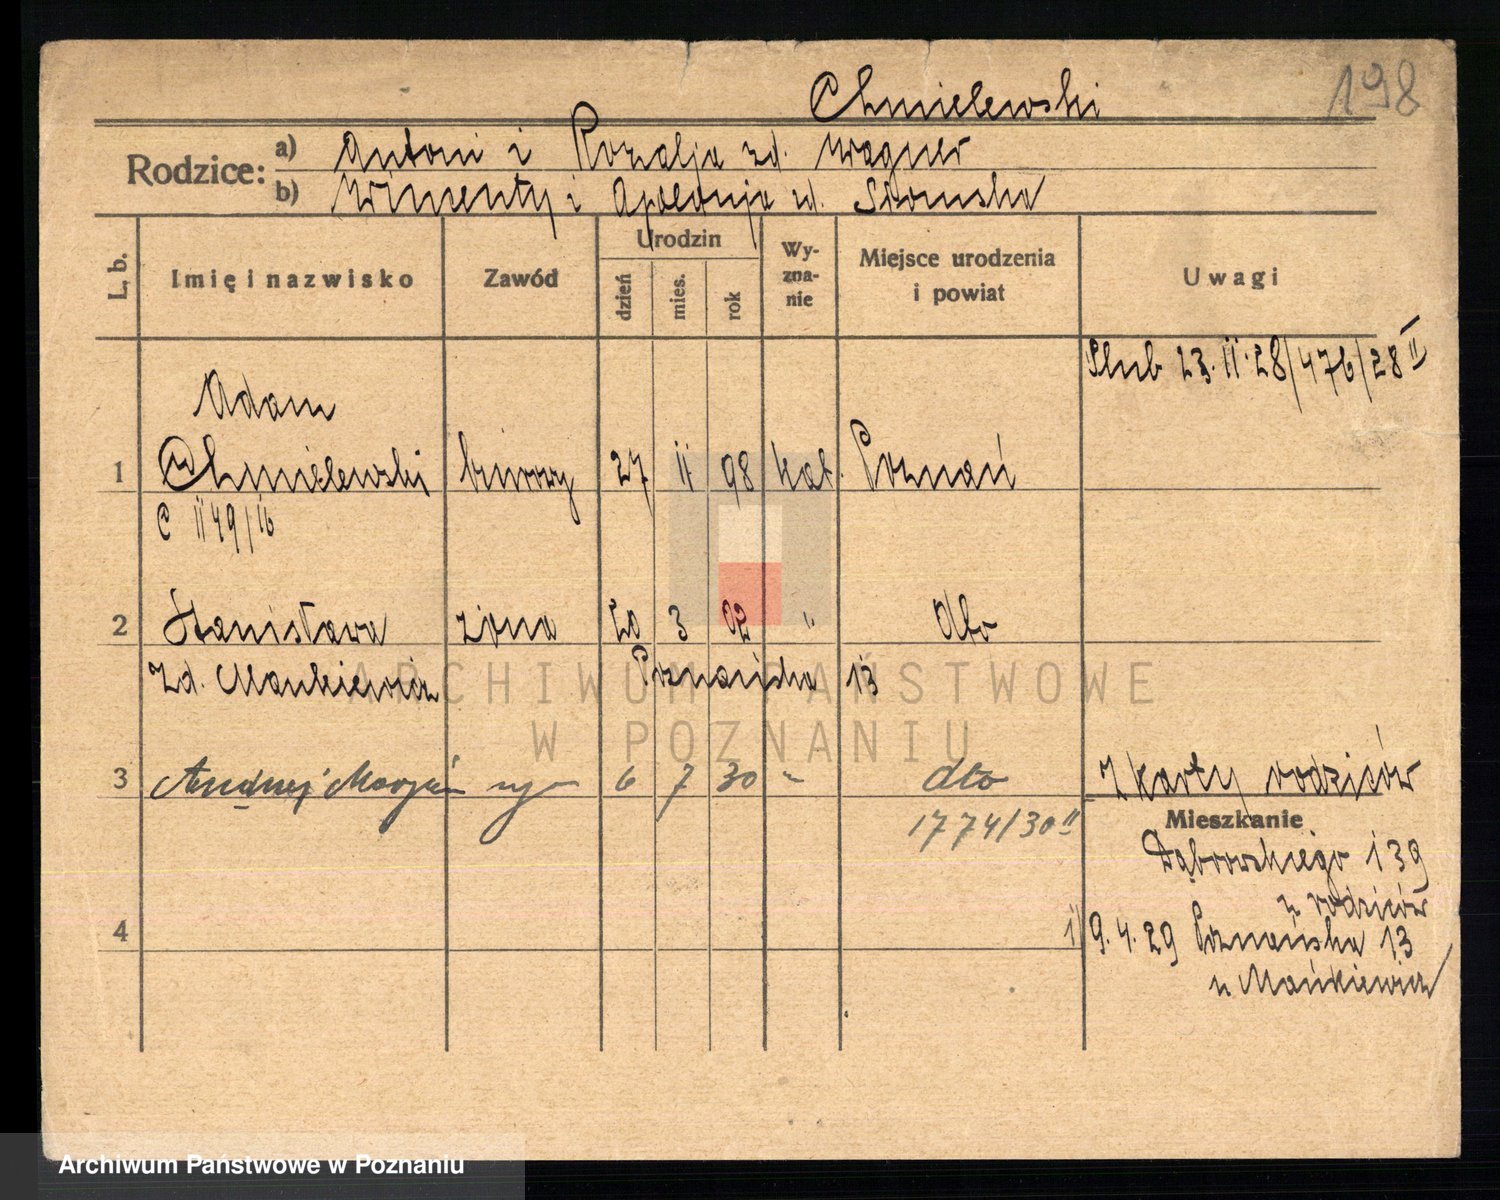 Chmielewski 198
Rodzice: a) Antoni i Rozalja zd. Wagner
b) Wincenty i Apolonja zd. Słomska
L. b. Imię i nazwisko Zawód Urodzin dzień mies. rok Wy-zna-nie Miejsce urodzenia i powiat Uwagi
Ślub 23.II.28/476/28 II
Adam
1 Chmielewski biurowy 27 II 98 kat. Poznań
C II 49/16
2 Stanisława żona 20 3 02 " dto
zd. Mańkiewicz Poznańska 13
3 Andrzej Marjan syn 6 7 30 " dto Z karty rodziców
1774/30 II
Mieszkanie
Dąbrowskiego 139
u rodziców
4
1) 9.4.29 Poznańska 13
u Mańkiewicz
ARCHIWUM PAŃSTWOWE
W POZNANIU
Archiwum Państwowe w Poznaniu